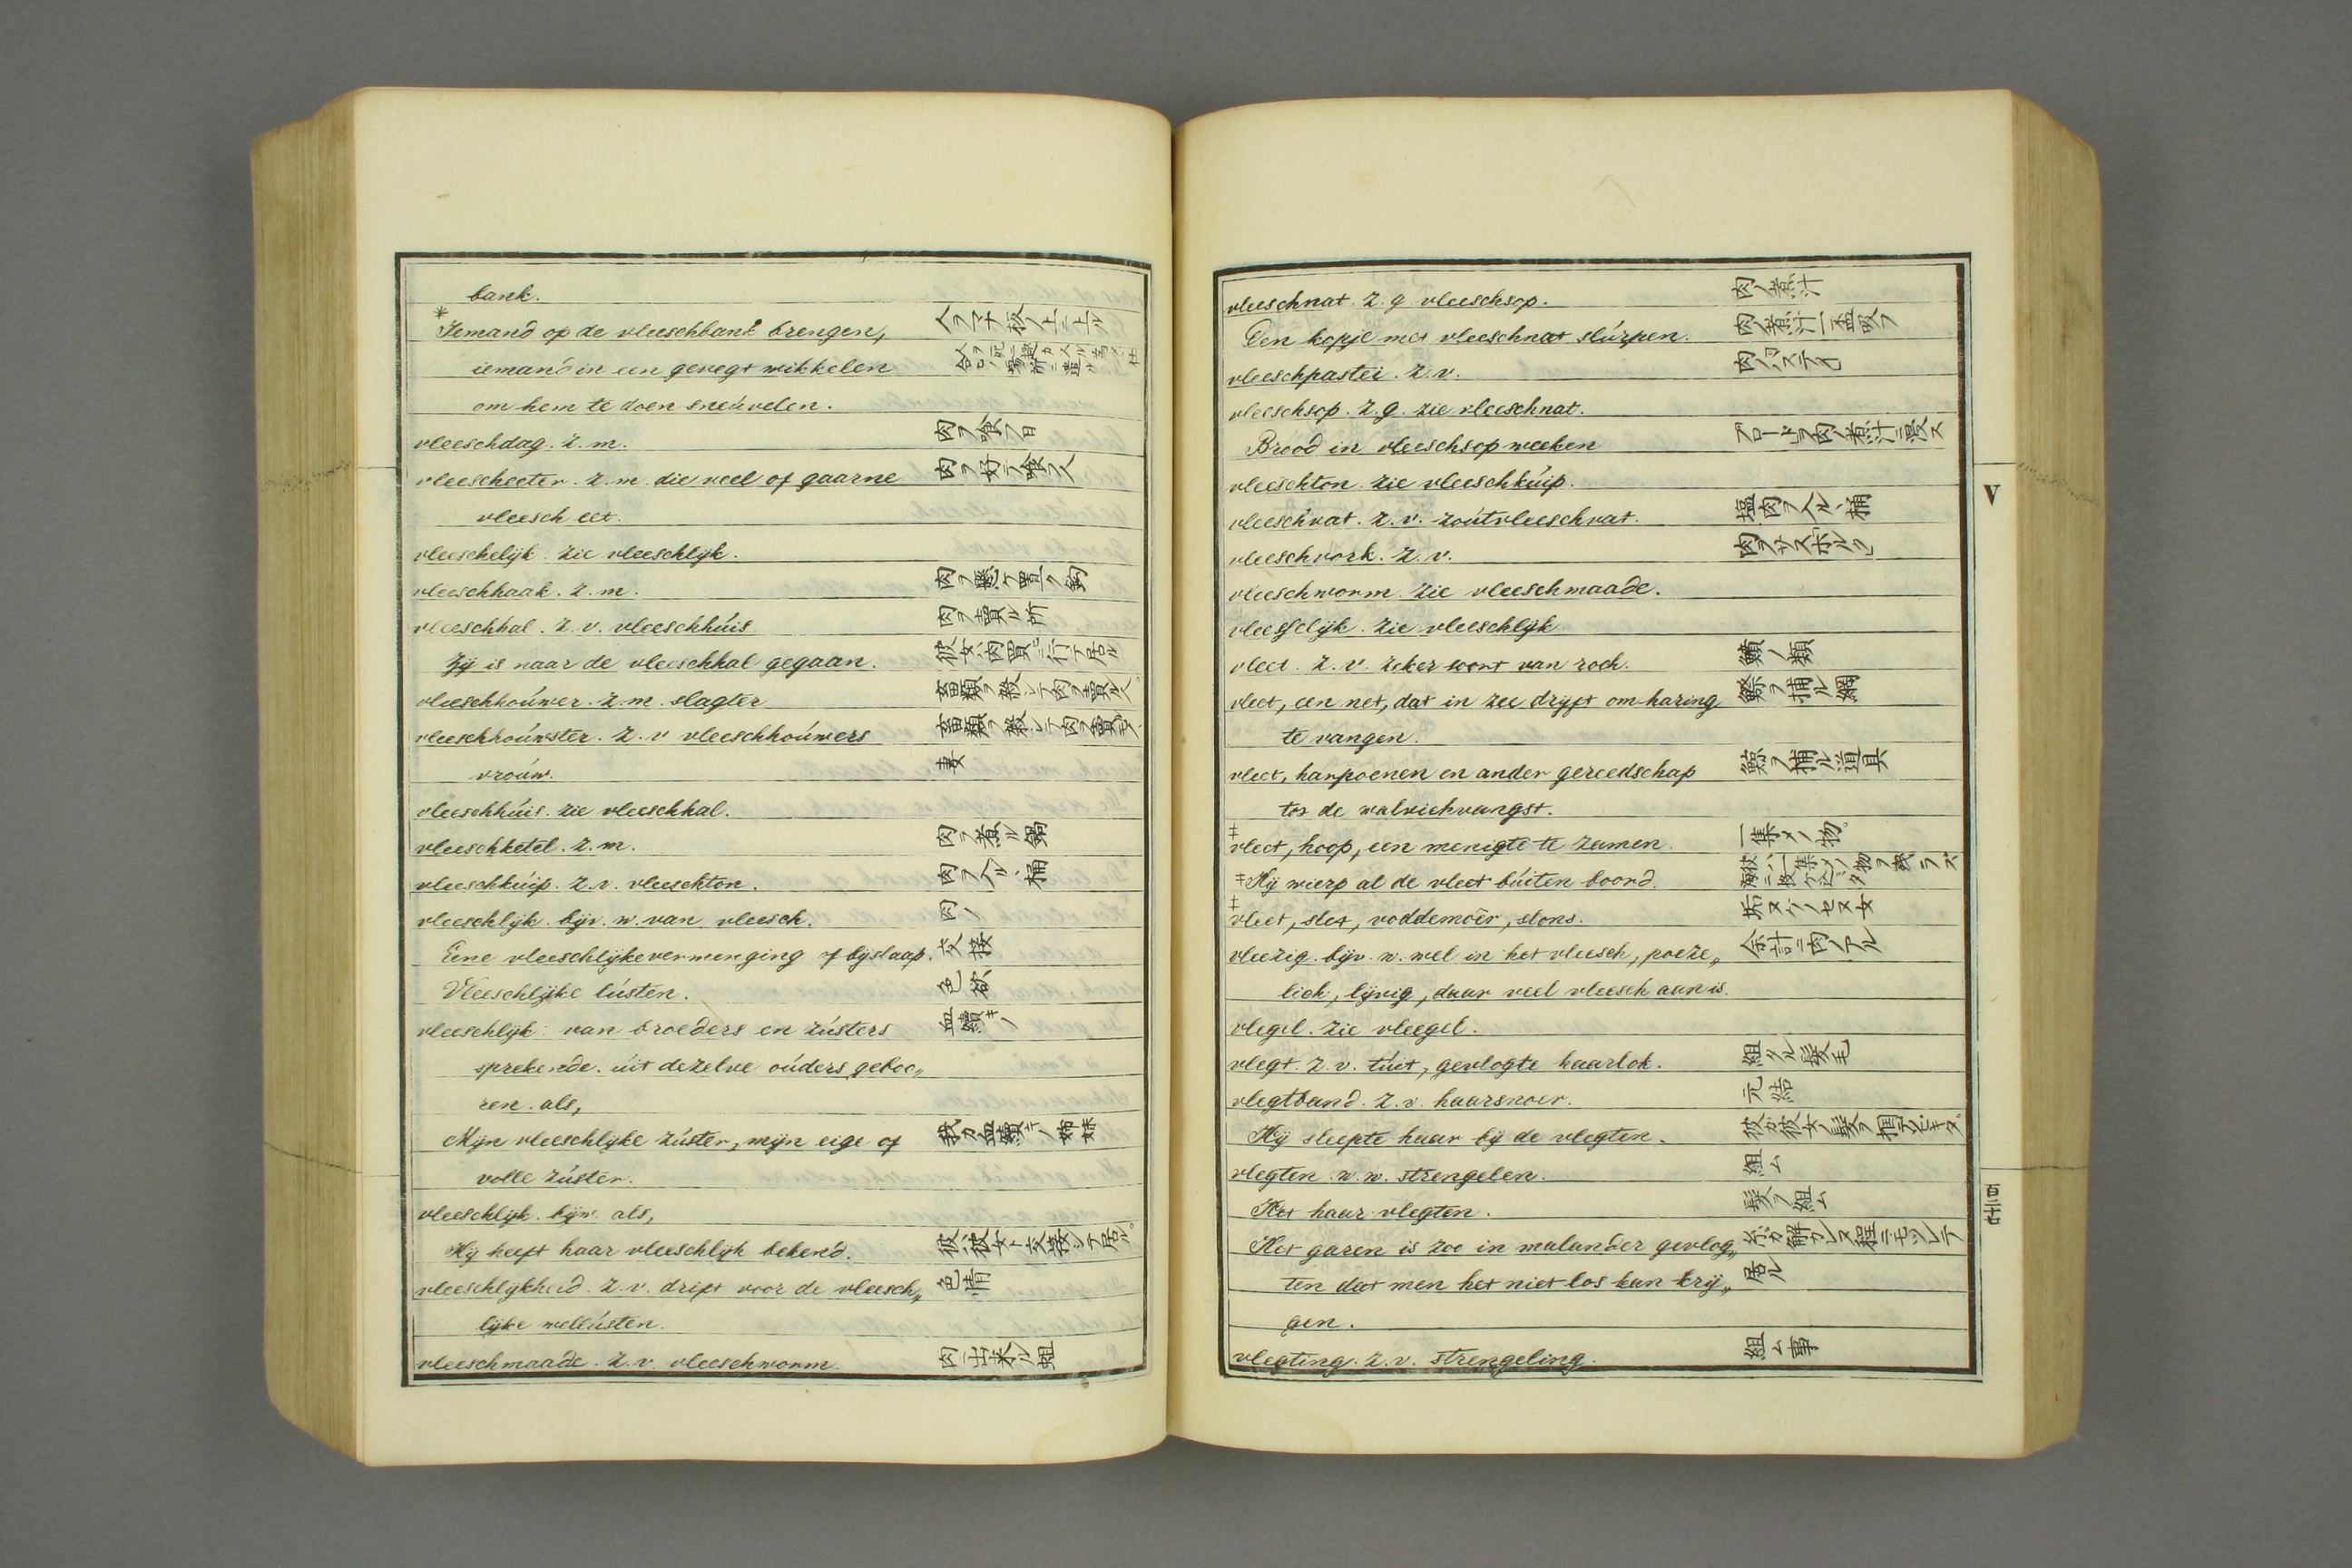 bank.
* Iemand op de vleeschbank brengen, 人ヲマナ板ノ上ニ上ル
iemand in een gevegt wikkelen
om hem te doen sneúvelen.
vleeschdag. z. m. 肉ヲ喰フ日
vleescheeter. z. m. die veel of gaarne 肉ヲ好テ喰フ人
vleesch eet.
vleeschelijk. zie vleeschlijk.
vleeschhaak. z. m. 肉ヲ懸ケ置ク鉤
vleeschhal. z. v. vleeschhúis 肉ヲ賣ル所
Zij is naar de vleeschhal gegaan. 彼女ハ肉買ニ行テ居ル
vleeschhoúwer. z. m. slagter 畜類ヲ殺シテ肉ヲ賣ル人
vleeschhoúwster. z. v vleeschhoúwers 畜類ヲ殺シテ肉ヲ賣ル
vroúw. 妻
vleeschhúis. zie vleeschhal.
vleeschketel. z. m. 肉ヲ煮ル鍋
vleeschkúip. z. v. vleeschton. 肉ヲ入ルヽ桶
vleeschlijk. bijv. w. van vleesch. 肉ノ
Eene vleeschlijke vermenging of bijslaap. 交接
Vleeschlijke lústen. 色欲
vleeschlijk. van broeders en zústers 血續キノ
sprekende. úit dezelve oúders geboo„
ren. als,
Mijn vleeschlijke zúster, mijn eige of 我カ血續キノ姉妹
volle zúster.
vleeschlijk. bijw. als,
Hij heeft haar vleeschlijk bekend. 彼ハ彼女ト交接シテ居ル
vleeschlijkheid. z. v. drift voor de vleesch„ 色情
lijke wellústen.
vleeschmaade. z. v. vleeschworm. 肉ニ出来ル蛆
vleeschnat. z. g vleeschsop. 肉ノ煮汁
Een kopje met vleeschnat slúrpen. 肉ノ煮汁一盃吸フ
vleeschpastei. z. v. 肉ノパステイ
vleeschsop. z. g. zie vleeschnat.
Brood in vleeschsop weeken ブロートヲ肉ノ煮汁ニ浸ス
vleeschton. zie vleeschkúip.
vleeschvat. z. v. zoútvleeschvat. 塩肉ヲ入ルヽ桶
vleeschvork. z. v. 肉ヲサスホルク
vleeschworm. zie vleeschmaade.
vleesselijk. zie vleeschlijk
vleet. z. v. zeker soort van roch. 鱝ノ類
vleet, een net, dat in zee drijft om haring ヲ捕ル網
te vangen.
vleet, harpoenen en ander gereedschap 鯨ヲ捕ル道具
tot de walvischvangst.
‡ vleet, hoop, een menigte te zamen. 一集メノ物
‡ Hij wierp al de vleet búiten boord.
‡ vleet, slet, voddemoêr, slons. 垢ヌグハセヌ女
vleezig. bijv. w. wel in het vleesch, poeze„ 余計ニ肉ノアル
lich, lijvig, daar veel vleesch aan is.
vlegel. zie vleegel.
vlegt. z. v. túit, gevlogte haarlok. 組タル髪毛
vlegtband. z. v. haarsnoer. 元結
Hij sleepte haar bij de vlegten. 彼カ彼女ノ髪ヲ掴テヒキタ
vlegten. w. w. strengelen. 組ム
Het haar vlegten. 髪ヲ組ム
Het garen is zoo in malander gevlog„ 糸ガ解カレヌ程ニモツレテ
ten dat men het niet los kan krij„ 居ル
gen.
vlegting. z. v. strengeling. 組ム事
V